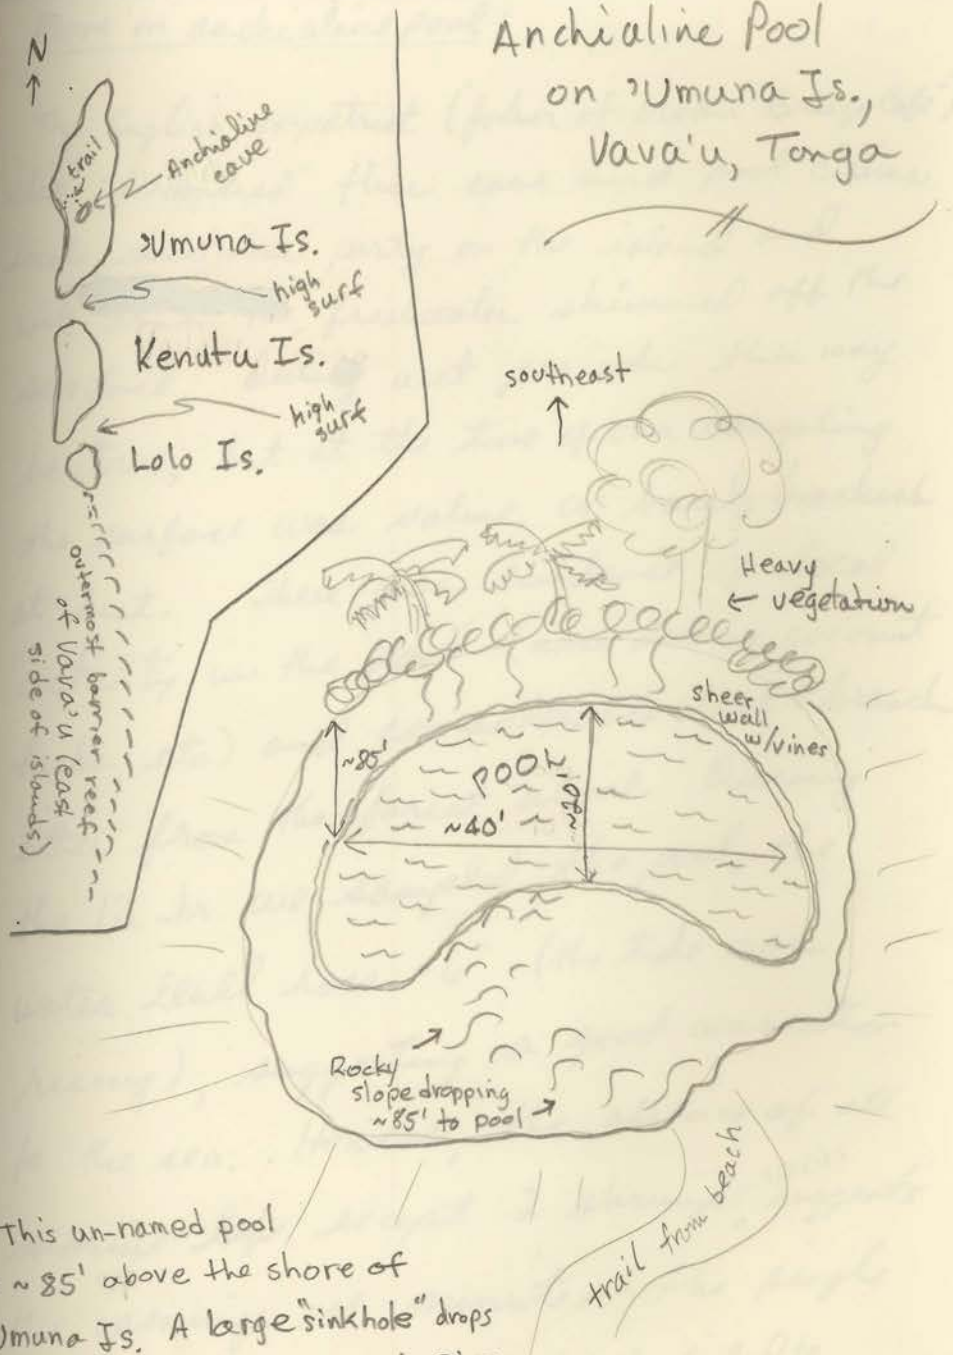 Anchialine Pool
on 'Umuna Is.,
Vava'u, Tonga
N
trail
Anchialine
cave
'Umuna Is.
high
surf
Kenutu Is.
high
surf
Lolo Is.
outermost barrier reef
of Vava'u (east
side of islands)
southeast
Heavy
vegetation
sheer
wall
w/vines
~85'
POOL
~20'
~40'
Rocky
slope dropping
~85' to pool
trail from beach
This un-named pool
~85' above the shore of
Umuna Is. A large "sinkhole" drops